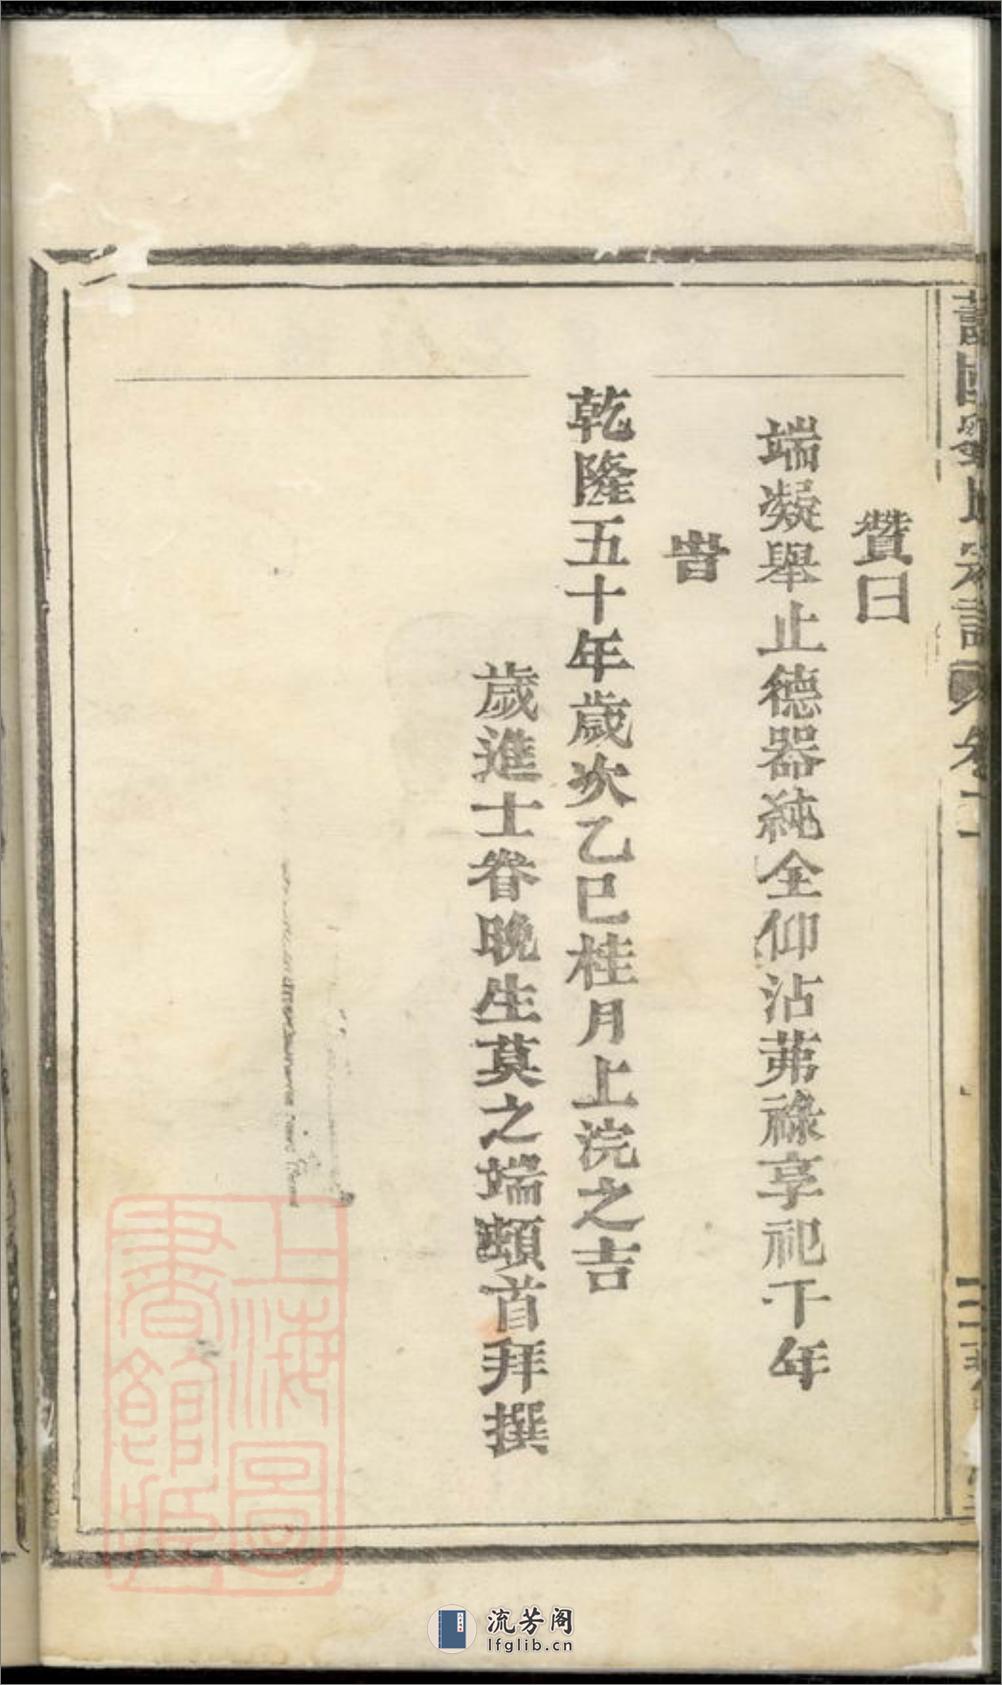 贊曰
端凝舉止德器純全仰沾茀祿享祀千年
旹
乾隆五十年歲次乙巳桂月上浣之吉
歲進士眷晚生莫之端頓首拜撰
上海圖
書館藏
流芳阁
lfglib.cn